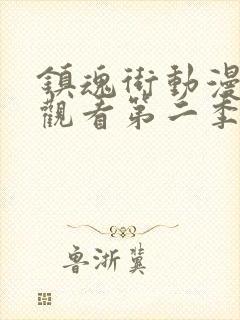 鎮魂街動漫
觀看第二季
魯浙冀